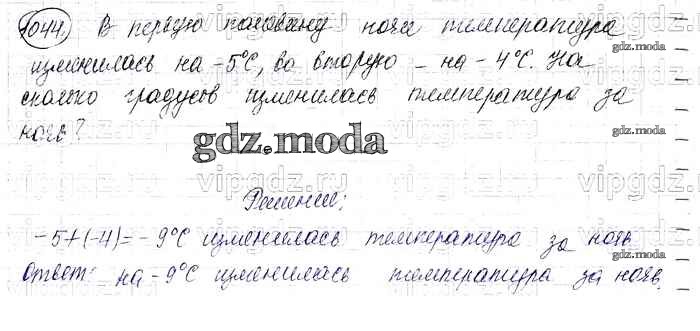 1044. В первую половину ночи температура
изменилась на -5°С, во вторую - на -4°С. На
сколько градусов изменилась температура за
ночь?
gdz.moda
Решение:
-5+(-4)=-9°С изменилась температура за ночь
Ответ: на -9°С изменилась температура за ночь.